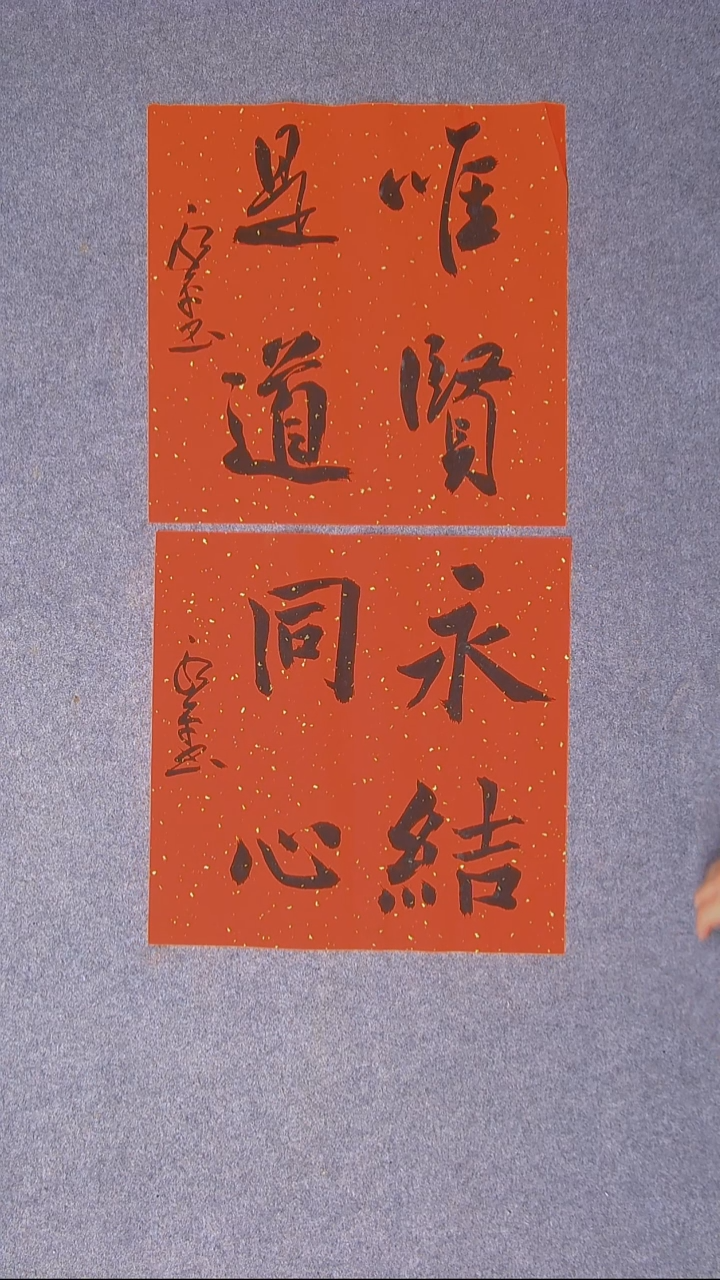 唯賢
是道
永結
同心